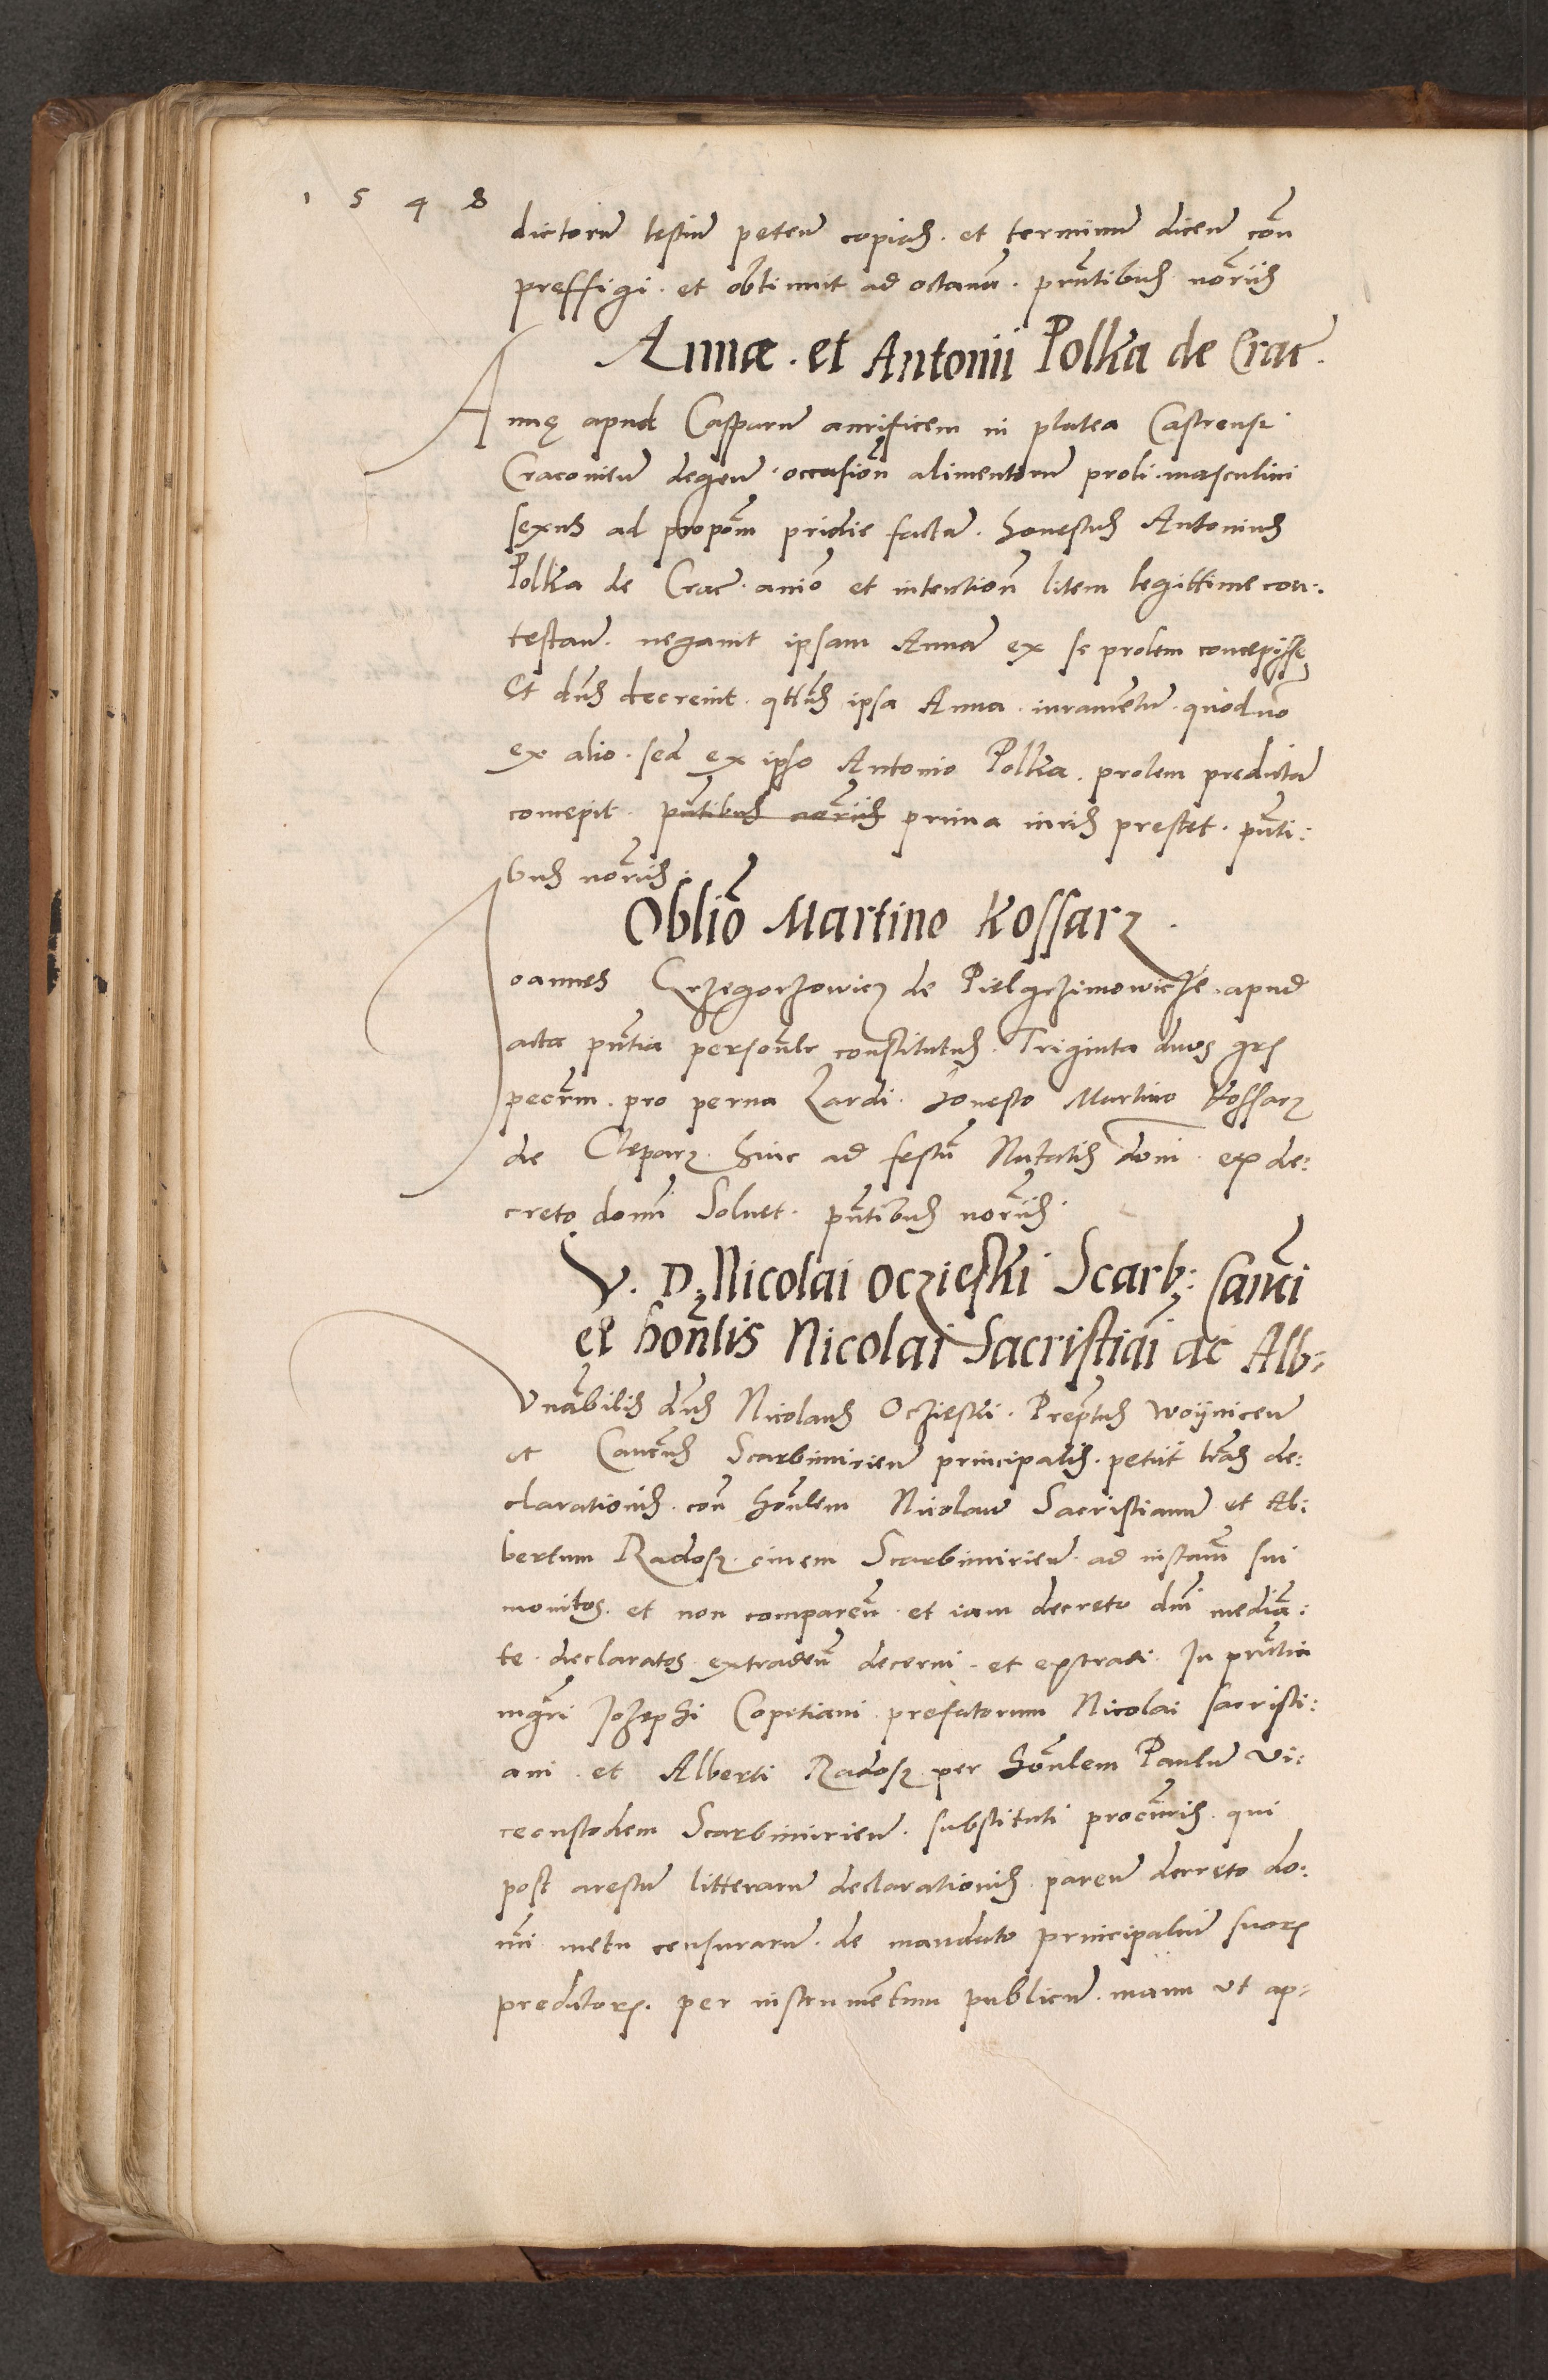 1 5 4 8
dictorũ testiũ peteñ copias. et terminũ diceñ coñ
preffigi. et obtinuit ad octavã. pñtibus noriis
Annæ. et Antonii Polka de Crac.
Annę apud Casparũ aurificem in platea Castrensi
Cracovieñ degeñ. occasioñ alimentorũ proli. masculini
sexus ad propoñ pridie factã. honestus Antonius
Polka de Crac. anio et intentioñ litem legittime con:
testañ. negavit ipsam Annã ex se prolem concepisse
Et dñs decrevit. qtñus ipsa Anna. iuramentũ. quod nõ
ex alio. sed ex ipso Antonio Polka. prolem predictã
concepit. pñtibus noriis prima iuris prestet. pñti:
bus noriis.
Oblio Martino Kossarz.
Ioannes Grzegorzowicz de Pielgrzimowicze. apud
acta pñtia personalr constitutus. Triginta duos grs
pecũm. pro perna Lardi. honesto Martino Kossarz
de Cleparz. hinc ad festũ Natalis dõni. ex de:
creto domi Solvet. pñtibus noriis.
V. D. Nicolai Oczieski Scarb: Canci
et honlis Nicolai Sacristiãi ac Alb:
Vnabilis dñs Nicolaus Oczieski. Preptus Woynicieñ
et Canũs Scarbimirieñ principalis. petiit lras de:
clarationis. coñ honlem Nicolaũ Sacristianũ et Al:
bertum Radosz. civem Scarbimirieñ. ad instañ sui
monitos. et non compareñ. et iam decreto dñi mediã:
te. declaratos. extradeñ decerni. et extradi. In pñtia
mgri Jozephi Copetiani. prefatorum Nicolai sacristi:
ani. et Alberti Radosz. per honlem Paulũ vi:
cecustodem Scarbimirieñ. substituti procuris. qui
post arestũ litterarũ declarationis. pareñ decreto do:
mi metu censurarũ. de mandato principaliũ suorũ
predictorũ. per instrumentum publicũ. manu ut ap: